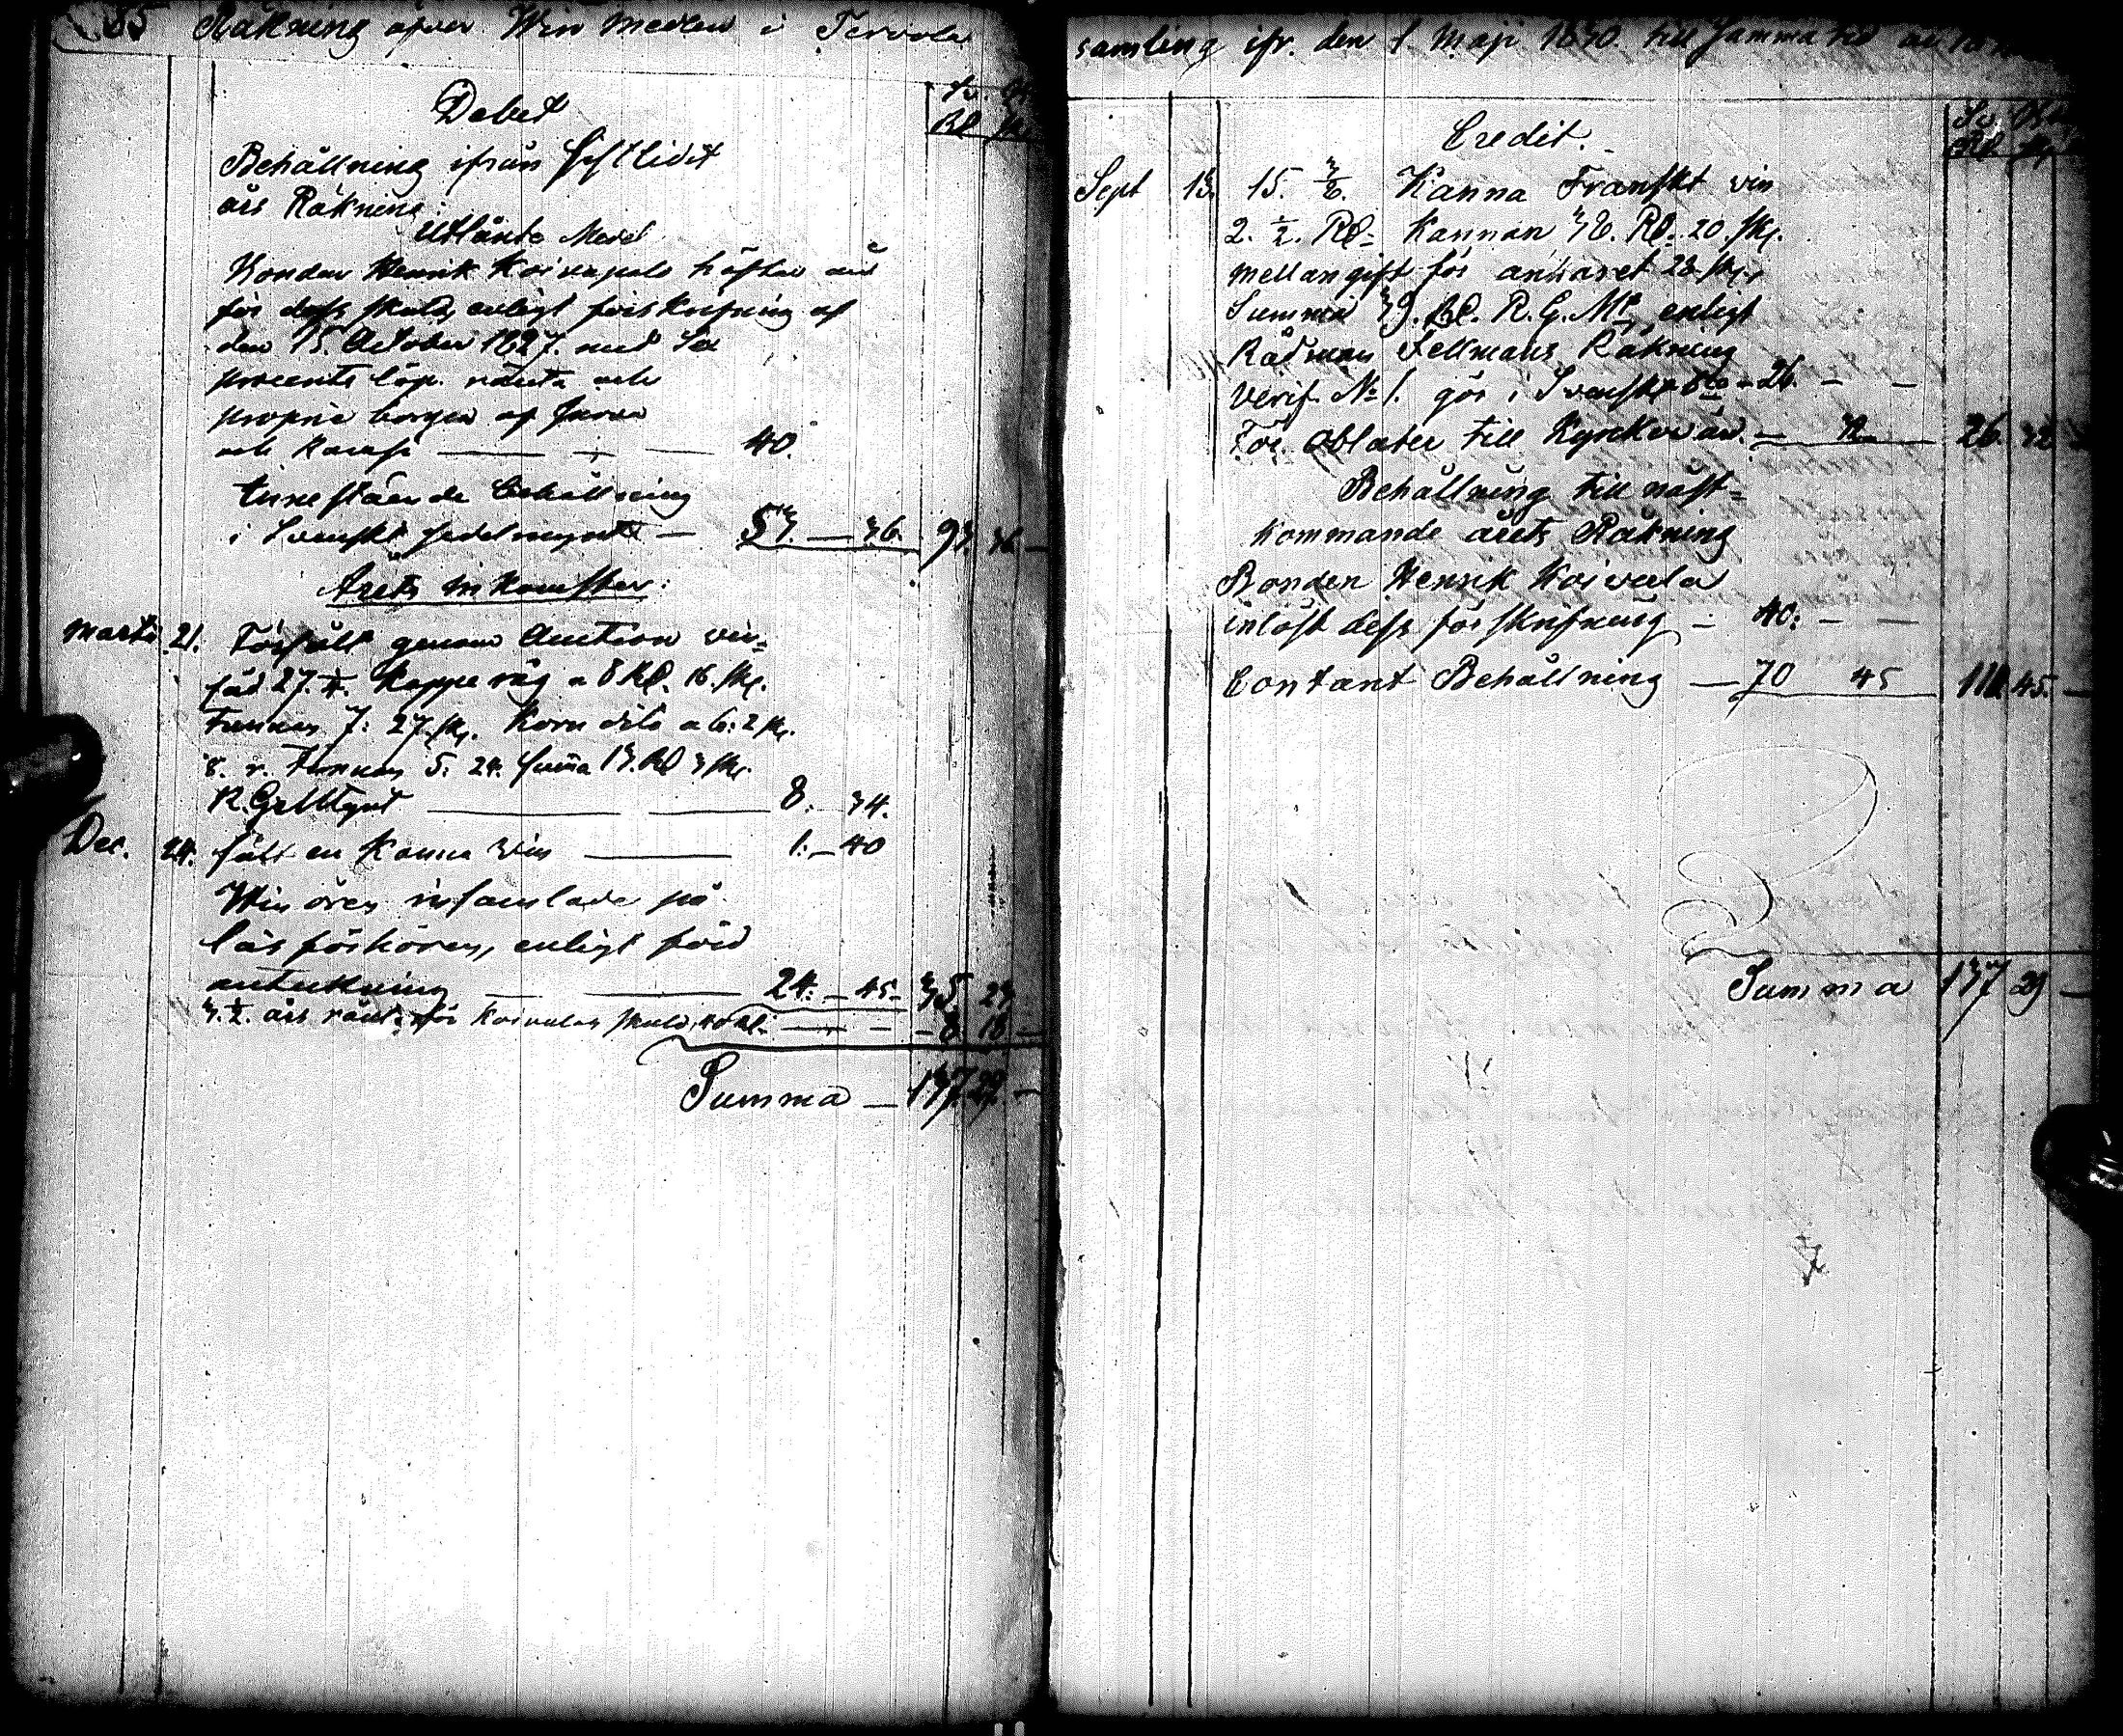 85 Räkning öfver Win Medlen i Tervola
Debet
Sv.
Rd sk
Behållning ifrån sistlidit
års Räkning:
Utlånte Medel
Bonden Henrik Koivupalo häftar
för dess skuld, enligt förskrifning af
den 15. October 1827. med Sex
procents löp. ränta och
proprie borgen af
och 40.
Innestående behållning
i Svenskt sedelmynt — 53. — 36. 93. 36. —
Årets inkomster:
Martii 21. Försålt genom Auction vin-
säd 27. 1/4. Kappe råg a 8 Rd. 16. sk.
Tunnan 7: 27. sk. Korn dito a 6: 2 sk.
Tunnan 5: 24. Summa 13. Rd 3 sk.
R. G. Mynt — 8. — 34.
Dec. 24. sålt en Kanna Vin — 1. — 40
Win ören insamlade på
läsförhören, enligt förd
anteckning — 24. — 45. 35. 23
3. 1/2. års ränta för Koivulas skuld, 40 Rd. — — 8. 18 —
Summa — 137. 29. —
samling ifr. den 1. Maji 1830. till samma tid
Credit.
Sv.
Rd. sk.
Sept 13. 15. 3/6. Kanna Franskt vin
2. 1/2. Rd. Kannan 36. Rd. 20 sk.
mellangift för ankaret 28 sk.
Summa 39. Rd. R. G. Mt. enligt
Rådman Fellmans Räkning
Verif. No 1. gör i Svenskt — 26. — —
För oblater till Kyrkvärd. — 32. — 26. 32 —
Behållning till näst-
kommande årets Räkning
Bonden Henrik Koivula
inlöst dess förskrifning — 40: — —
Contant Behållning — 70 45 110. 45. —
Summa 137 29 —